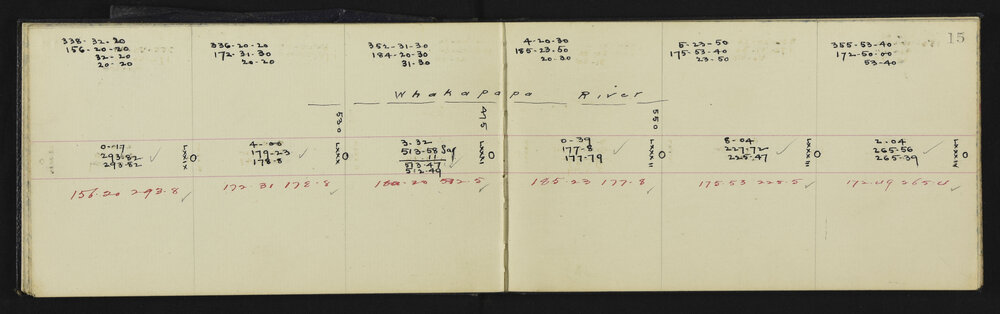 15
338-32-20
156-20-20
32-20
20-20
336-20-20
172-31-30
20-20
352-31-30
184-20-30
31-30
4-20-30
185-23-50
20-30
5-23-50
175-53-40
23-50
355-53-40
172-50-00
53-40
Whakapapa River
530
475
550
0-17
293.82
293.82
LXXIX
O
4-06
179-23
178.8
LXXX
O
3.32
513-58 Sag
.11
513.47
512.49
LXXXI
O
0-39
177-8
177.79
LXXXII
O
8-04
227.72
225.47
LXXXIII
O
2-04
265-56
265.39
LXXXIV
O
156.20 293.8
172.31 178.8
185-23 177.8
175-53 225.5
172.49 265.4